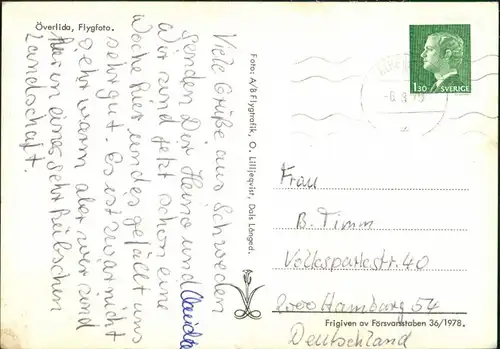 Överlida, Flygfoto.
Viele Grüße aus Schweden
senden Dir Heino und Claudia
Wir sind jetzt schon eine
Woche hier und es gefällt uns
sehr gut. Es ist zwar nicht
sehr warm aber wir sind
hier in einer sehr hübschen
Landschaft.
Foto: A/B Flygtrafik, O. Lilljeqvist, Dals Långed.
130 SVERIGE
Frau
B. Timm
Volksparkstr. 40
2000 Hamburg 54
Deutschland
Frigiven av Försvarsstaben 36/1978.